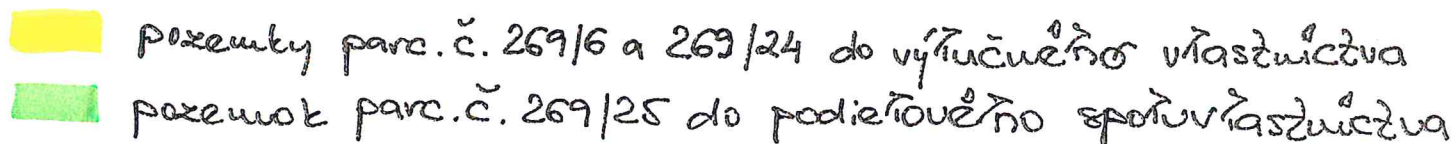 pozemky parc. č. 269/6 a 269/24 do výlučného vlastníctva
pozemok parc. č. 269/25 do podielového spoluvlastníctva